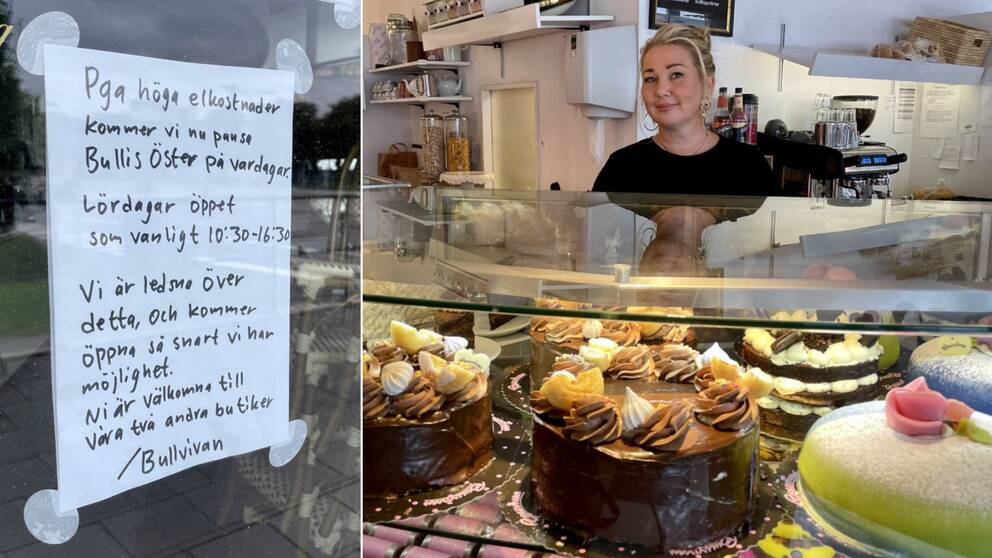 Pga höga elkostnader
kommer vi nu pausa
Bullis Öster på vardagar.
Lördagar öppet
som vanligt 10:30-16:30
Vi är ledsna över
detta, och kommer
öppna så snart vi har
möjlighet.
Ni är välkomna till
våra två andra butiker
/Bullvivan